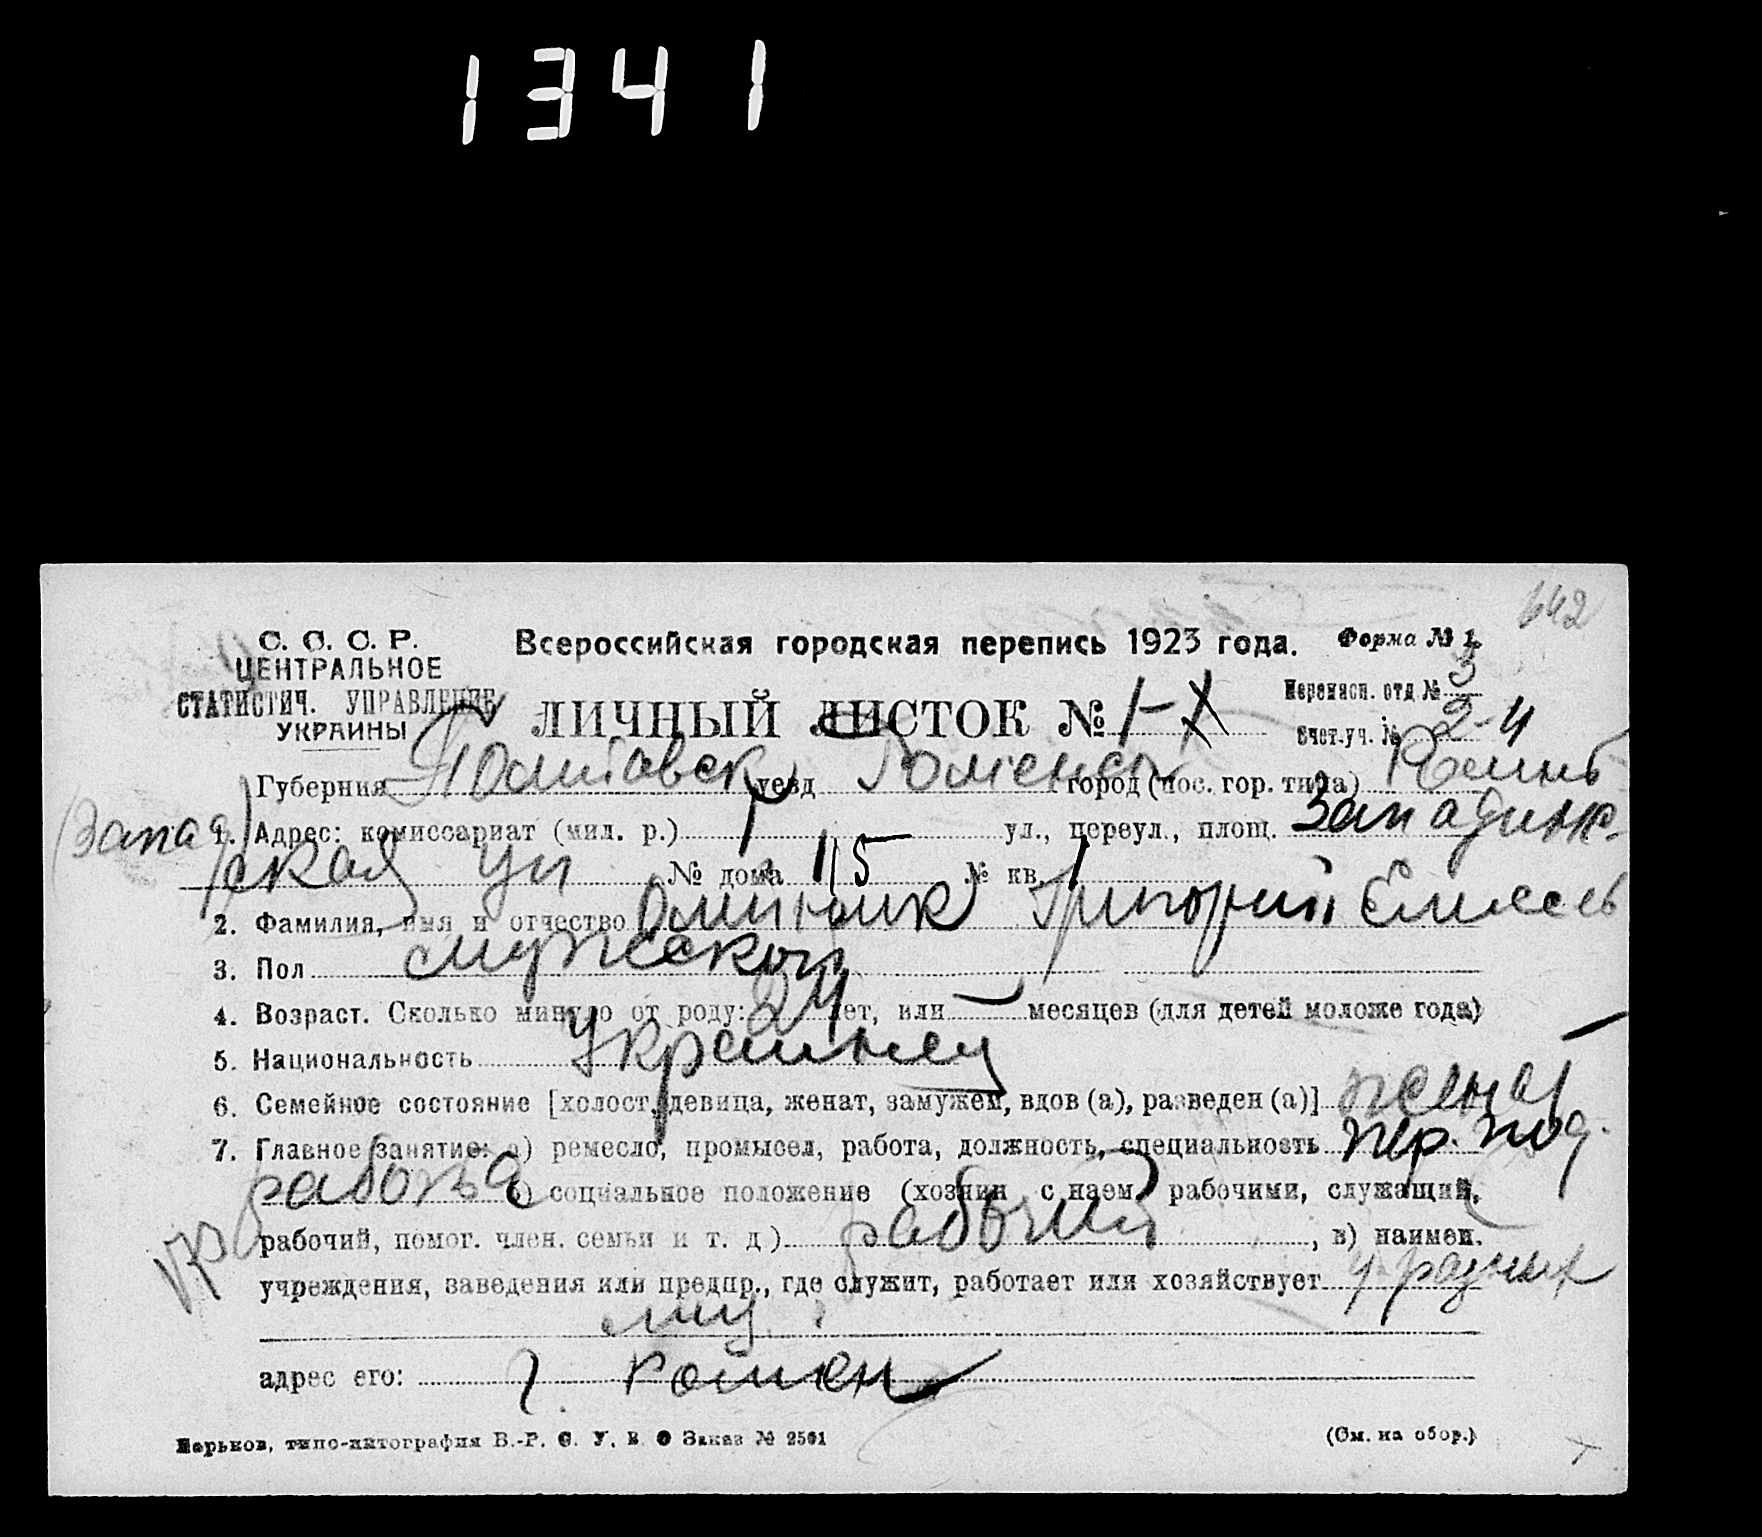 1341
642
С. С. С. Р.
ЦЕНТРАЛЬНОЕ
СТАТИСТИЧ. УПРАВЛЕНИЕ
УКРАИНЫ
Всероссийская городская перепись 1923 года. Форма № 1.
ЛИЧНЫЙ ЛИСТОК № 1-X
Переписн. отд № 3
Счет.уч. № 2-4
Губерния Полтавск уезд Роменск город (пос. гор. типа)
1. Адрес: комиссариат (мил. р.) 1 ул., переул., площ.
ская ул № дома 115 № кв. 1
2. Фамилия, имя и отчество Григорий
3. Пол мужской
4. Возраст. Сколько минуло от роду: 24 лет, или — месяцев (для детей моложе года)
5. Национальность Украинец
6. Семейное состояние [холост, девица, женат, замужем, вдов (а), разведен (а)] женат
7. Главное занятие: а) ремесло, промысел, работа, должность, специальность
работа б) социальное положение (хозяин с наем. рабочими, служащий,
рабочий, помог. член. семьи и т. д.) рабочий, в) наимен.
учреждения, заведения или предпр., где служит, работает или хозяйствует у разных
лиц
адрес его: г. Ромен
Харьков, типо-литография В.-Р. С. У. В. О Заказ № 2501
(См. на обор.)